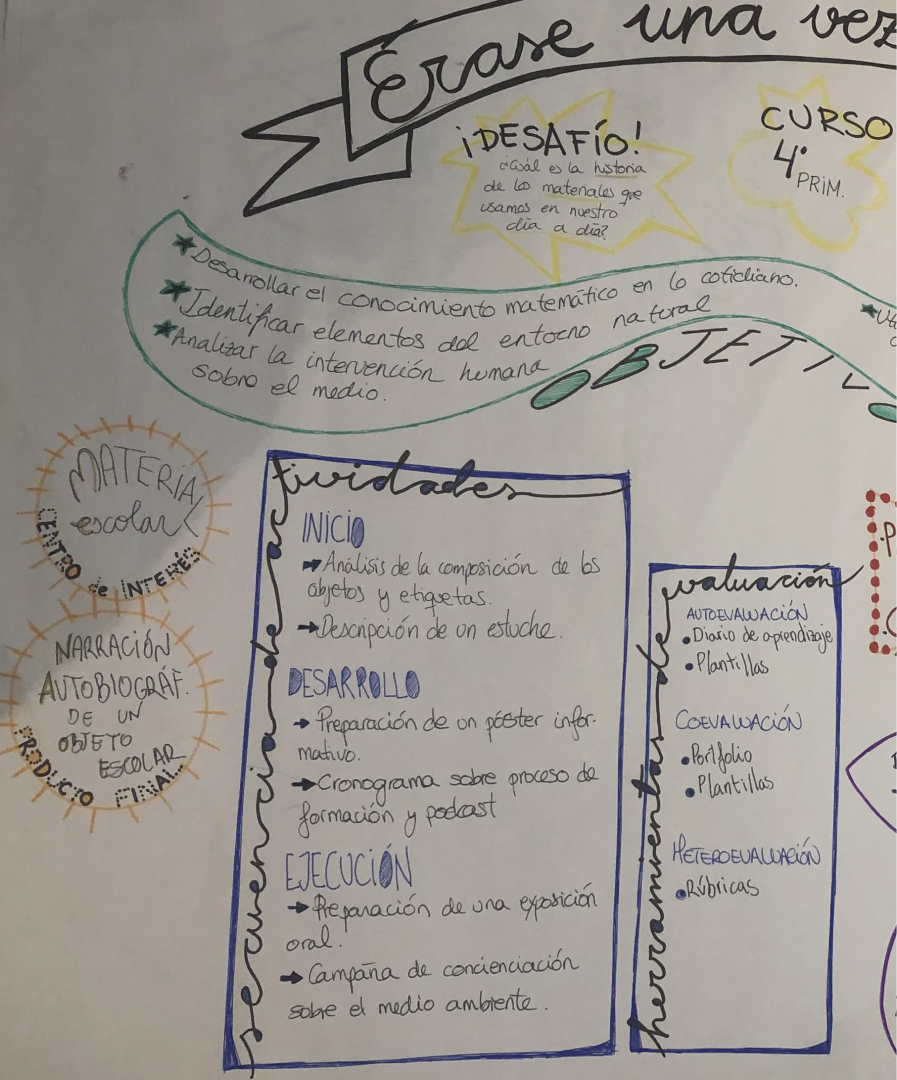 Érase una vez
¡DESAFÍO!
¿Cuál es la historia
de los materiales que
usamos en nuestro
día a día?
CURSO
4º
PRIM.
★Desarrollar el conocimiento matemático en lo cotidiano.
★Identificar elementos del entorno natural
★Analizar la intervención humana
sobre el medio.
OBJETIVO
MATERIAL
escolar
CENTRO de INTERÉS
NARRACIÓN
AUTOBIOGRÁF.
DE UN
OBJETO
ESCOLAR
PRODUCTO FINAL
secuencia de actividades
INICIO
→Análisis de la composición de los
objetos y etiquetas.
→Descripción de un estuche.
DESARROLLO
→Preparación de un póster infor-
mativo.
→Cronograma sobre proceso de
formación y podcast
EJECUCIÓN
→Preparación de una exposición
oral.
→Campaña de concienciación
sobre el medio ambiente.
herramientas de evaluación
AUTOEVALUACIÓN
•Diario de aprendizaje
•Plantillas
COEVALUACIÓN
•Portfolio
•Plantillas
HETEROEVALUACIÓN
•Rúbricas